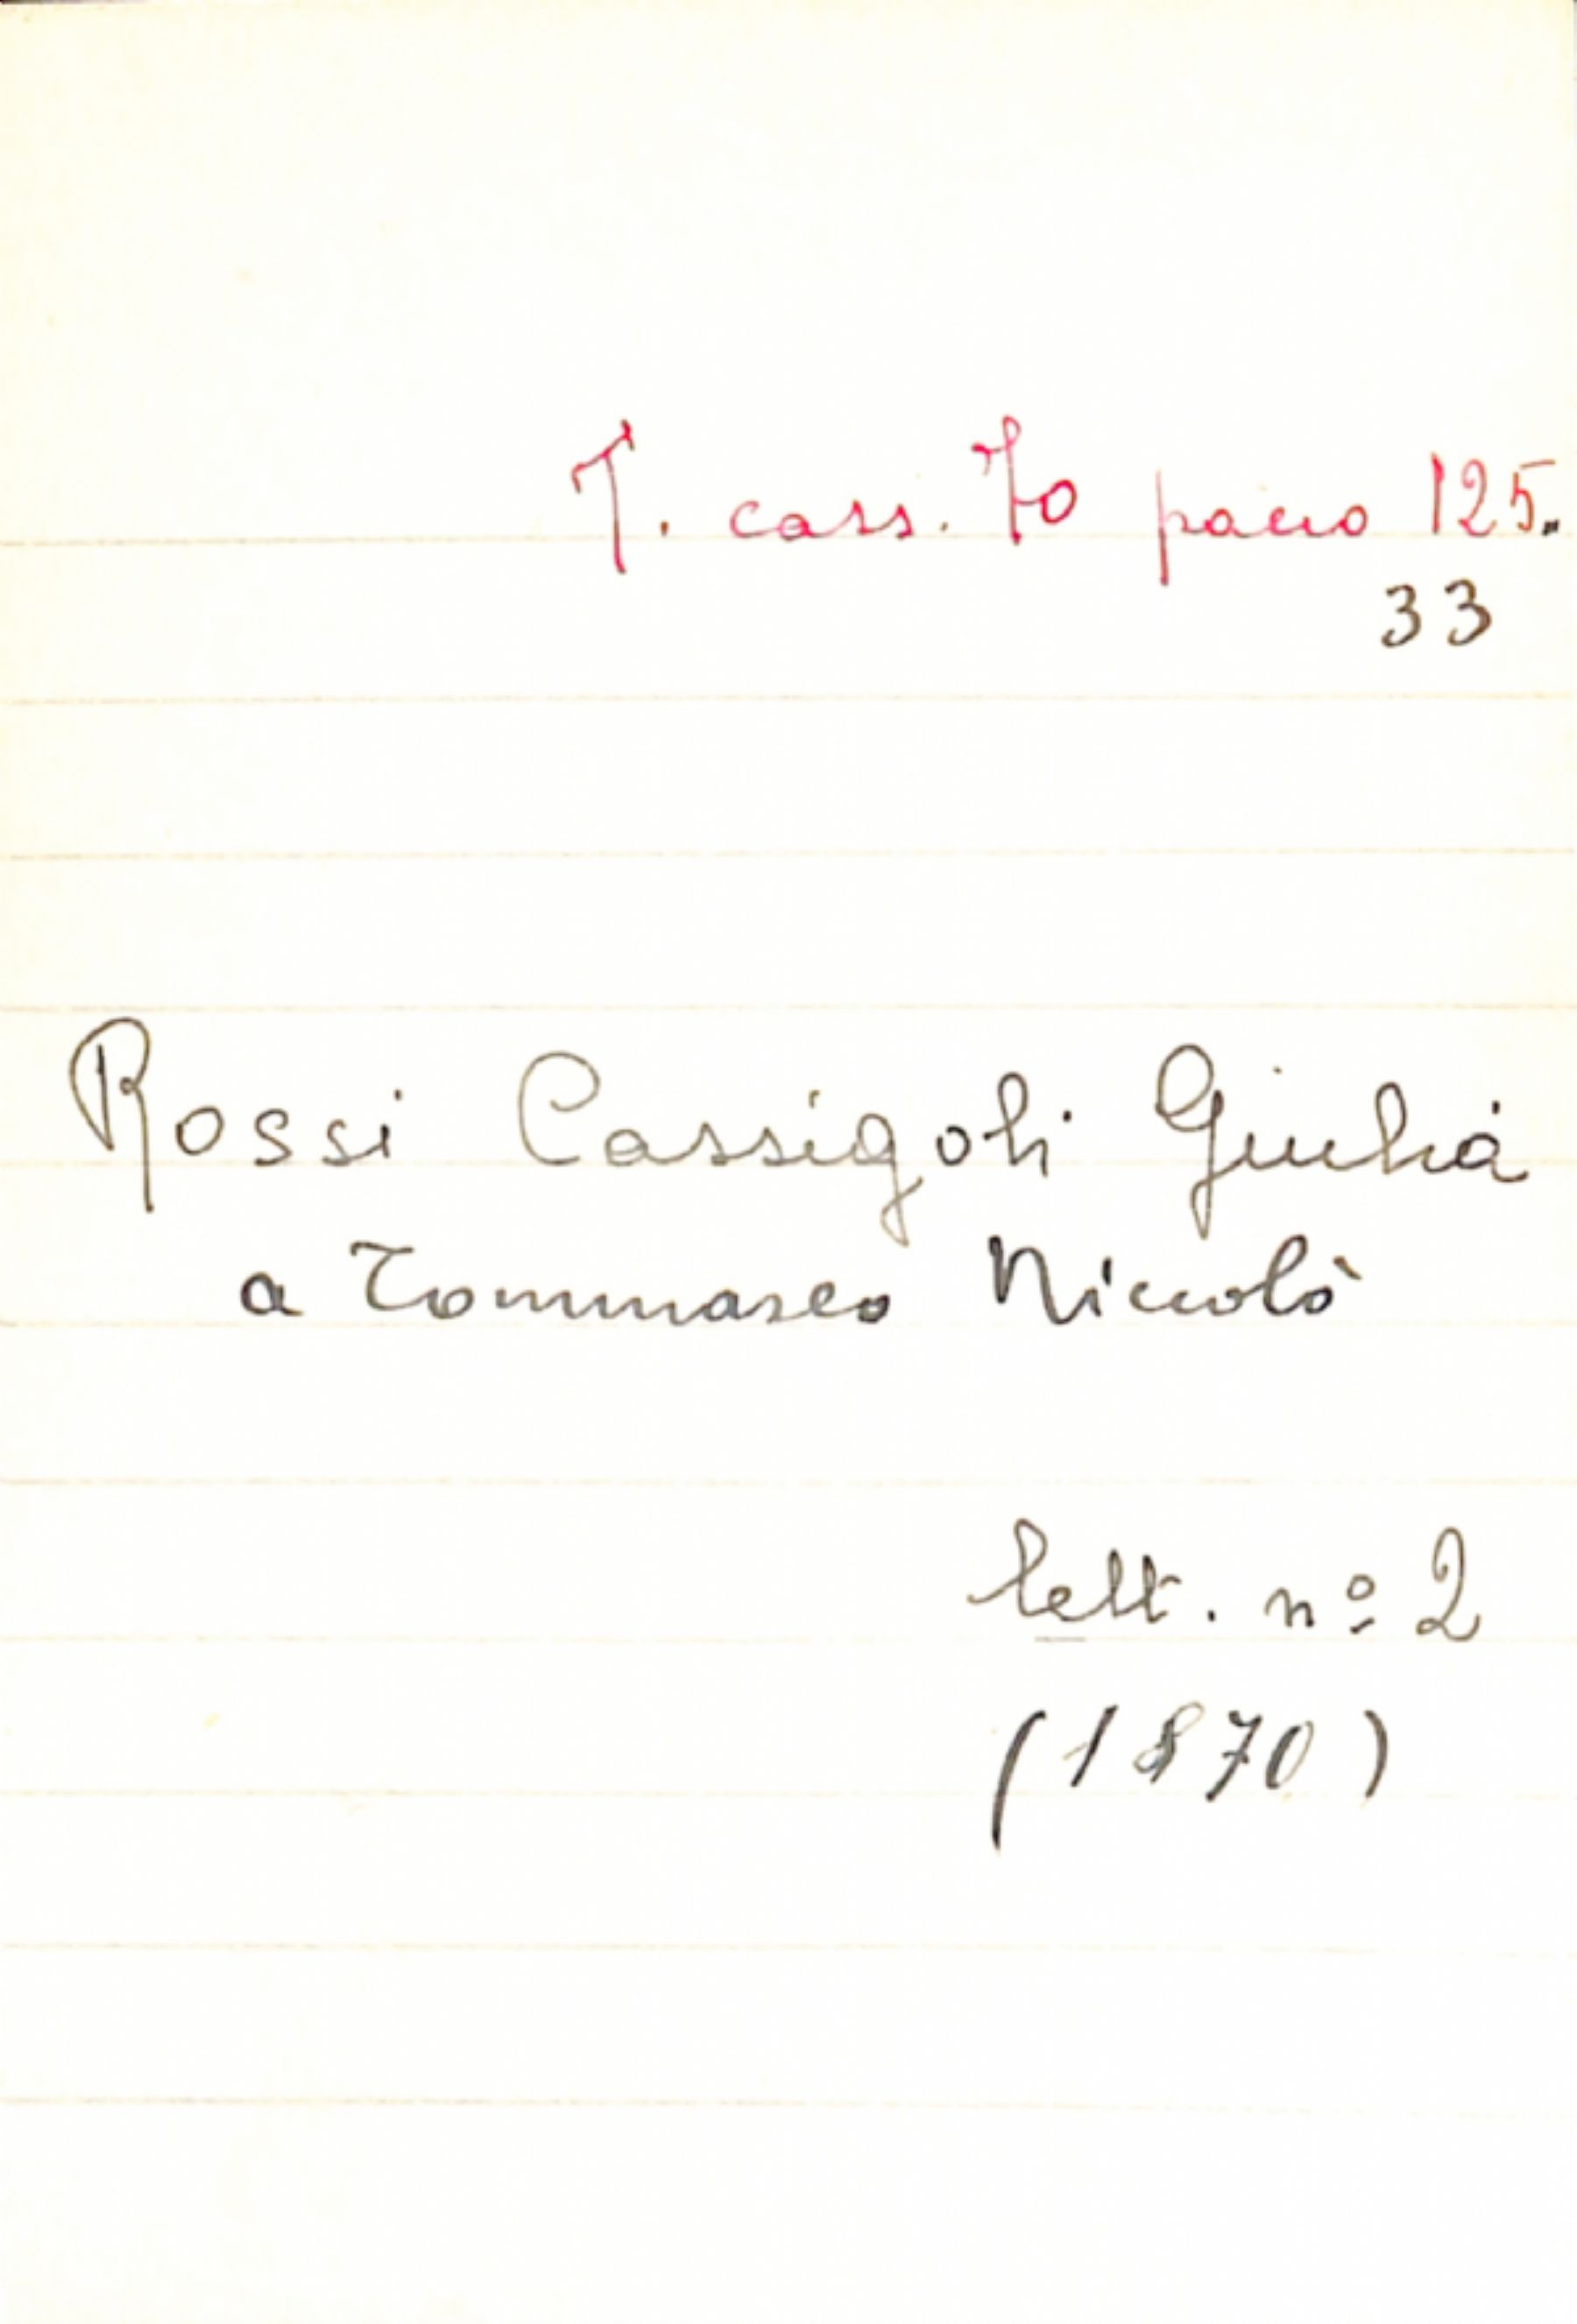 T. cass. 70 pacco 125.
33
Rossi Cassigoli Giulia
a Tommaseo Niccolò
lett. nº 2
(1870)